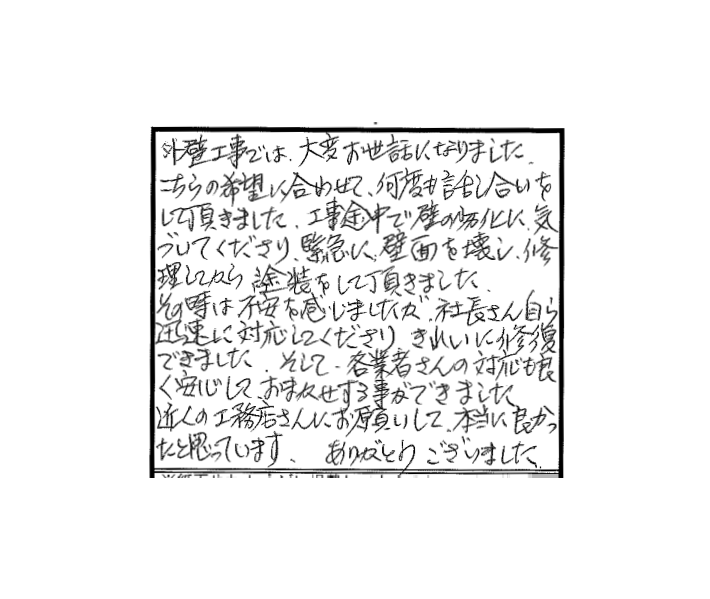 外壁工事では、大変お世話になりました。
こちらの希望に合わせて、何度も話し合いを
して頂きました。工事途中で壁の劣化に、気
づいてくださり、緊急に、壁面を壊し、修
理してから塗装をして頂きました。
その時は不安を感じましたが、社長さん自ら
迅速に対応してくださり きれいに修復
できました。そして、各業者さんの対応も良
く安心して、おまかせする事ができました。
近くの工務店さんにお願いして、本当に良かっ
たと思っています。 ありがとうございました。